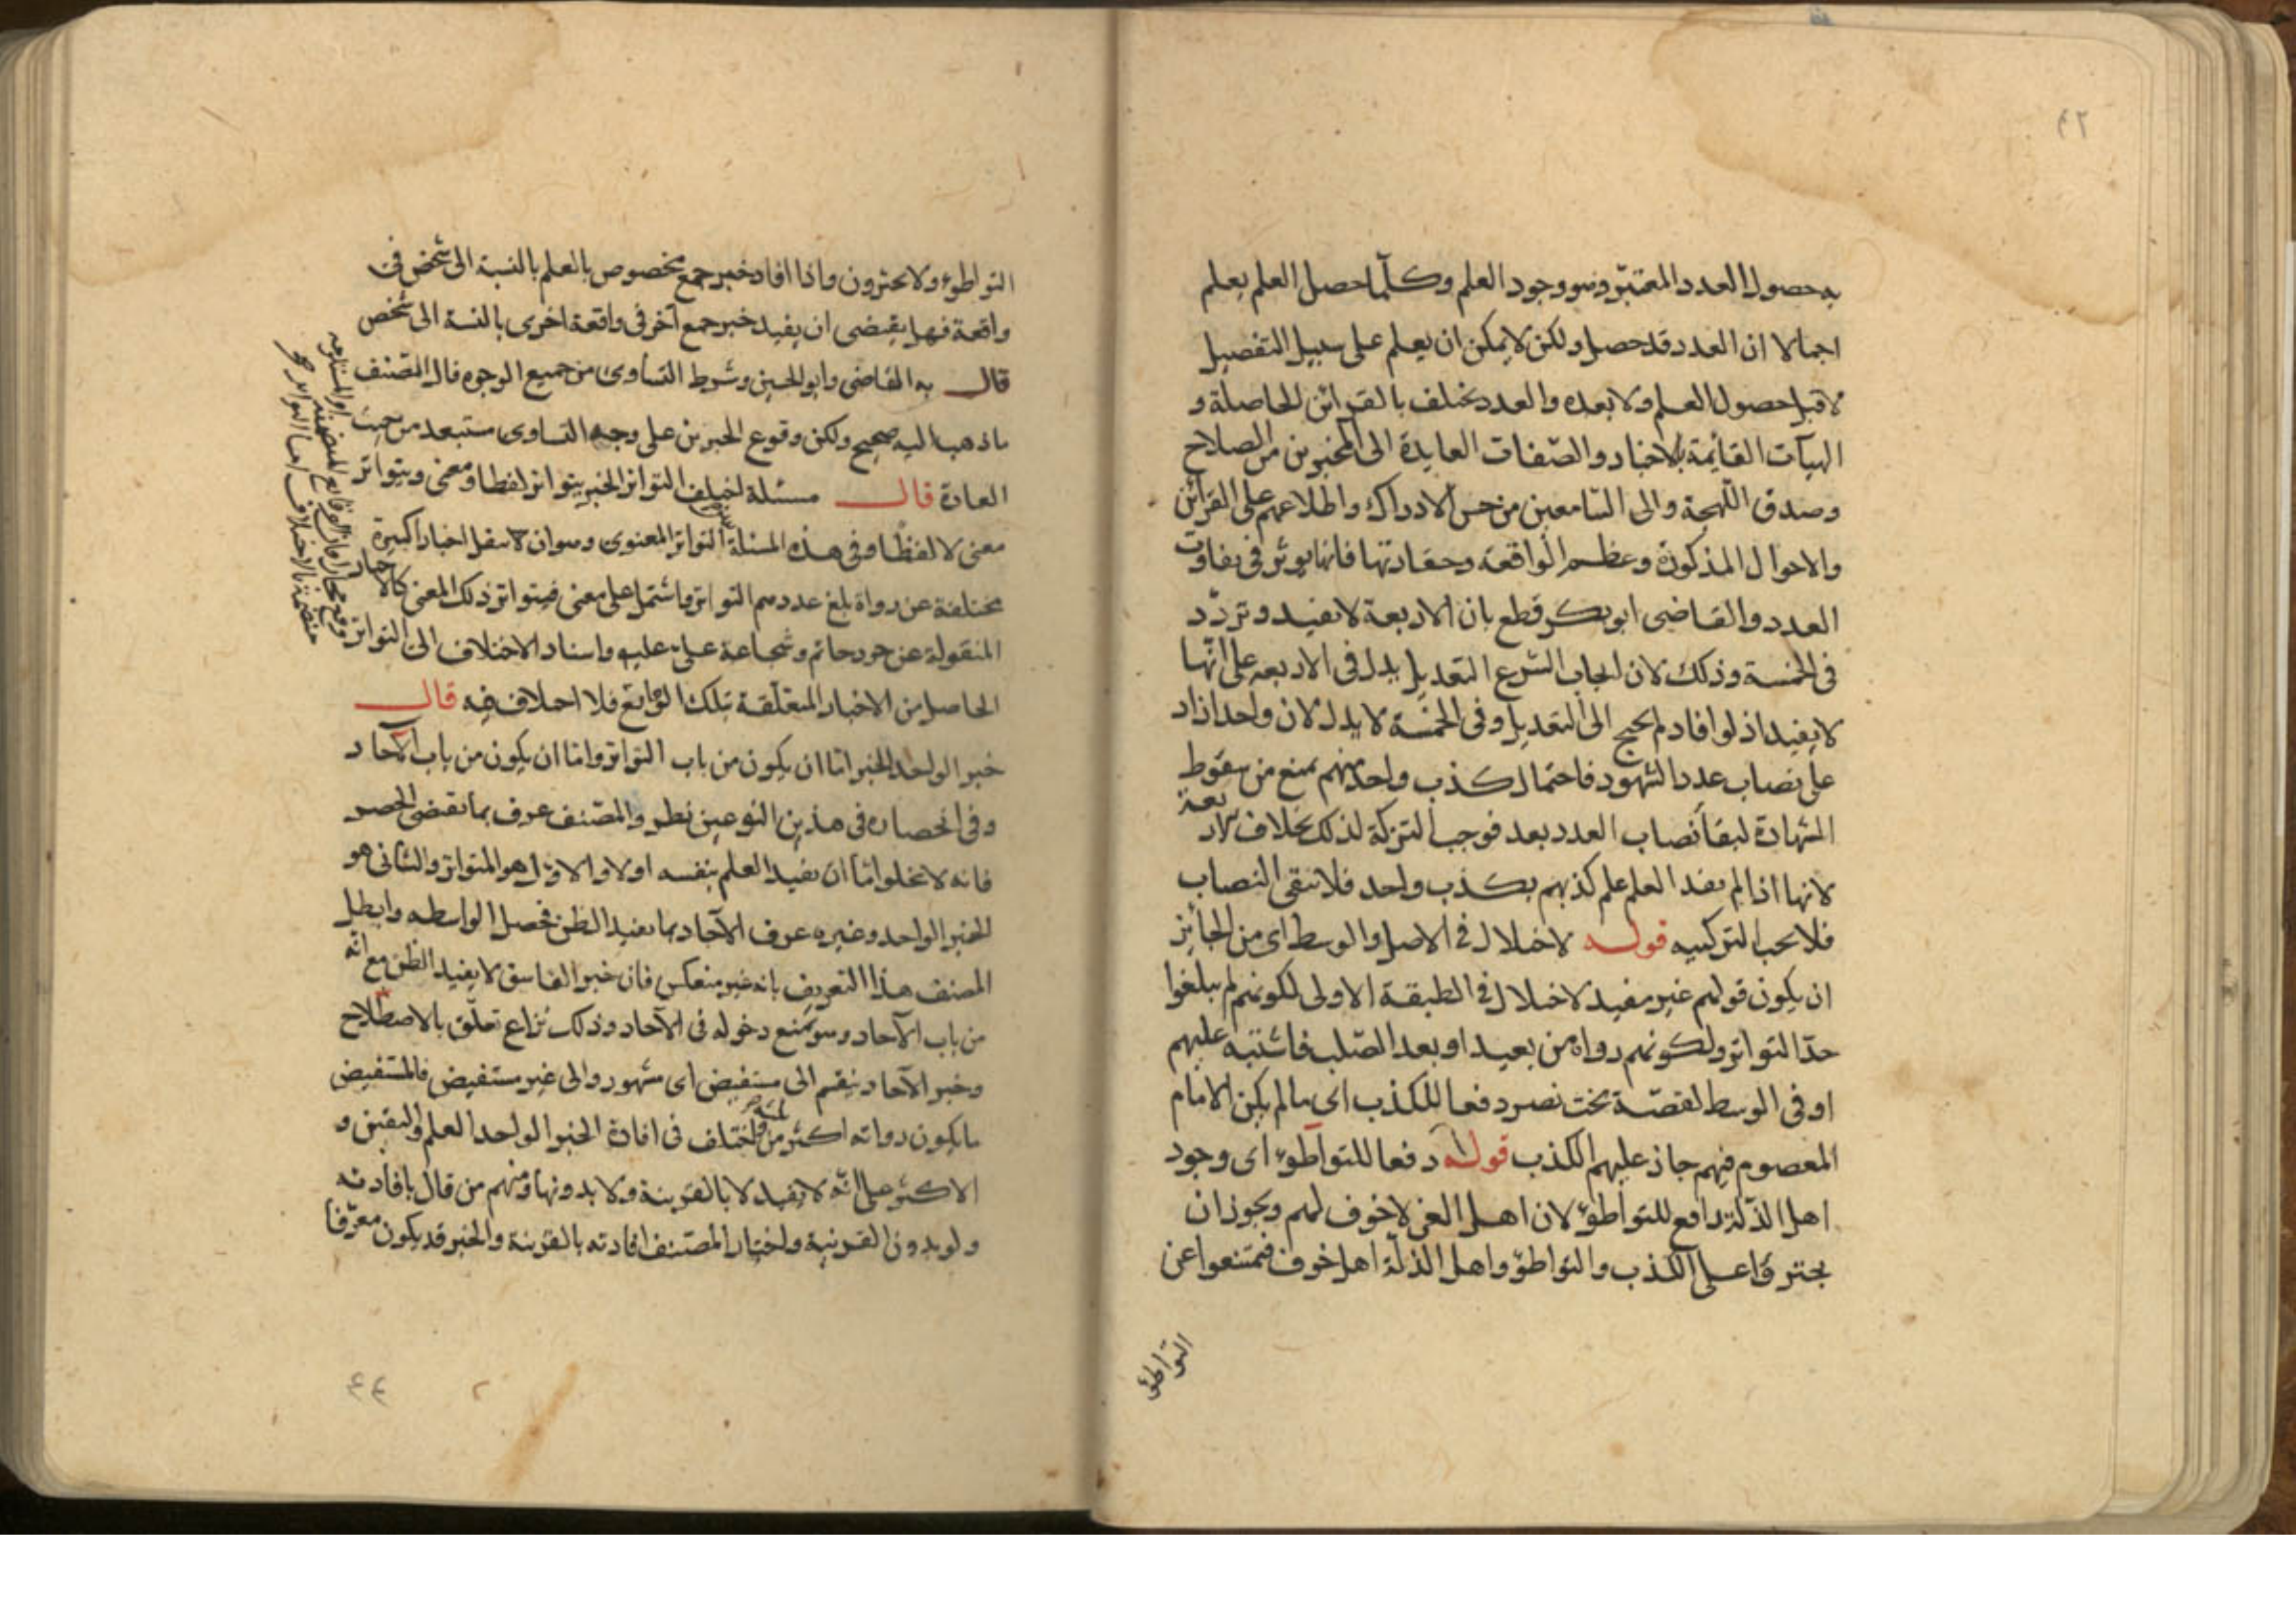 ٤٢
به حصول العدد المعتبر وهو وجود العلم وكلما حصل العلم يعلم
اجمالا ان العدد قد حصل ولكن لا يمكن ان يعلم على سبيل التفصيل
لا قبل حصول العلم ولا بعده والعدد يختلف بالقرائن الحاصلة و
الهيآت القائمة بالاخبار والصفات العايدة الى المخبرين من الصلاح
وصدق اللهجة والى السامعين من حسن الادراك واطلاعهم على القرائن
والاحوال المذكورة وعظم الواقعة وحقارتها فانها يوثر في تفاوت
العدد والقاضى ابو بكر قطع بان الاربعة لا تفيد وتردّد
فى الخمسة وذلك لان ايجاب الشرع التعديل يدل فى الاربعه على انها
لا يفيد اذ لو افاد لم يحتج الى التعديل وفى الخمسة لا يدل لان واحدا زاد
على نصاب عدد الشهود فاحتمال كذب واحد منهم يمنع من سقوط
الشهادة لبقاء نصاب العدد بعد فوجب التزكة لذلك بخلاف الاربعة
لانها اذا لم تفد العلم علم كذبهم بكذب واحد فلا تبقى النصاب
فلا يجب التزكيه قوله لاختلال في الاصل والوسط اى من الجائز
ان يكون قولهم غير مفيد لاختلال في الطبقة الاولى لكونهم لم يبلغوا
حدّ التواتر ولكونهم رواه من بعيد او بعد الصّلب فاشتبه عليهم
او فى الوسط لقصّة بخت نصر دفعا للكذب اى ما لم يكن الامام
المعصوم فيهم جاز عليهم الكذب قوله دفعا للتواطؤ اى وجود
اهل الذلة دافع للتواطؤ لان اهل العز لا خوف لهم ويجوز ان
يجترؤا على الكذب والتواطؤ واهل الذلّة اهل خوف فيمتنعوا عن
التواطؤ
التواطؤ ولا يجترون واذا افاد خبر جمع مخصوص بالعلم بالنسبة الى شخص فى
واقعة فهل يقتضى ان يفيد خبر جمع آخر فى واقعة اخرى بالنسة الى شخص
قال به القاضى وابو الحسين وشرط التساوى من جميع الوجوه قال المصنف
ما ذهبا اليه صحيح ولكن وقوع الخبرين على وجه التساوى مستبعد من حيث
العادة قال مسئلة اختلف التواتر الخبر يتواتر لفظا ومعنى ويتواتر
معنى لا لفظا وفى هذه المسئلة التواتر المعنوى وهو ان ينقل اخبارا كبيرة
مختلفة عن رواة بلغ عددهم التواتر ما اشتمل على معنى فيتواتر ذلك المعنى كالاخبار
المنقولة عن جود حاتم وشجاعة على عليه واسناد الاختلاف الى التواتر
الحاصل من الاخبار المتعلّقة بتلك الوقايع فلا اختلاف فيه قال
خبر الواحد الخبر امّا ان يكون من باب التواتر وامّا ان يكون من باب الآحاد
وفى انحصاره فى هذين النوعين نظر والمصنف عرف بما يقتضى الحصر
فانه لا يخلو امّا ان يفيد العلم بنفسه اولا والاول هو المتواتر والثانى هو
الخبر الواحد وغيره عرف الآحاد بما يفيد الظن فحصل الواسطه وابطل
المصنف هذا التعريف بانه غير منعكس فان خبر الفاسق لا يفيد الظن مع انّه
من باب الآحاد وهو يمنع دخوله فى الآحاد وذلك نزاع تعلّق بالاصطلاح
وخبر الآحاد ينقسم الى مستفيض اى مشهور والى غير مستفيض فالمستفيض
ما يكون رواته اكثر من ثلثة واختلف فى افادة الخبر الواحد العلم واليقين و
الاكثر على انّه لا يفيد لا بالقرينة ولا بدونها ومنهم من قال بافادته
ولو بدون القرنية واختيار المصنف افادته بالقرينة والخبر قد يكون معرّفا